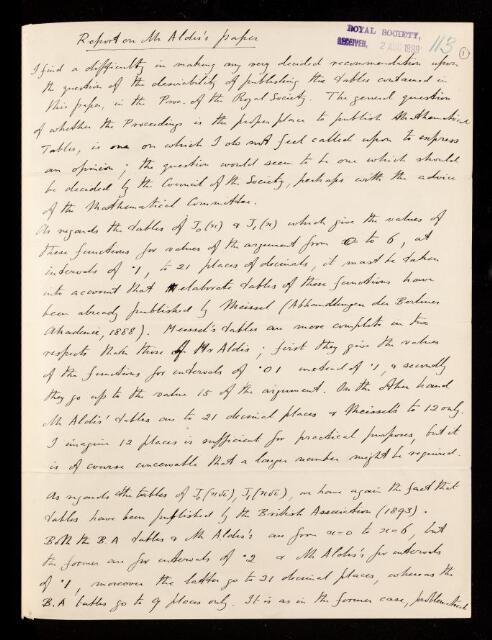 ROYAL SOCIETY,
RECEIVED, 2 AUG 1899
113
1
Report on Mr Aldis's paper
I find a difficulty in making any very decided recommendation upon
the question of the desirability of publishing the tables contained in
this paper, in the Proc. of the Royal Society. The general question
of whether the Proceedings is the proper place to publish Mathematical
Tables, is one on which I do not feel called upon to express
an opinion; the question would seem to be one which should
be decided by the Council of the Society, perhaps with the advice
of the Mathematical Committee.
As regards the tables of J₀(x) & J₁(x) which give the values of
these functions for values of the argument from 0 to 6, at
intervals of ·1, to 21 places of decimals, it must be taken
into account that elaborate tables of these functions have
been already published by Meissel (Abhandlungen der Berliner
Akademie, 1888). Meissel's tables are more complete in two
respects than those of Mr Aldis; first they give the values
of the functions for intervals of ·01 instead of ·1, & secondly
they go up to the value 15 of the argument. On the other hand
Mr Aldis' tables are to 21 decimal places & Meissel's to 12 only.
I imagine 12 places is sufficient for practical purposes, but it
is of course conceivable that a larger number might be required.
As regards the tables of I₀(x√i), I₁(x√i), we have again the fact that
tables have been published by the British Association (1893).
Both the B.A tables & Mr Aldis's are from x=0 to x=6, but
the former are for intervals of ·2 & Mr Aldis's for intervals
of ·1, moreover the latter go to 21 decimal places, whereas the
B.A tables go to 9 places only. It is as in the former case, problematical